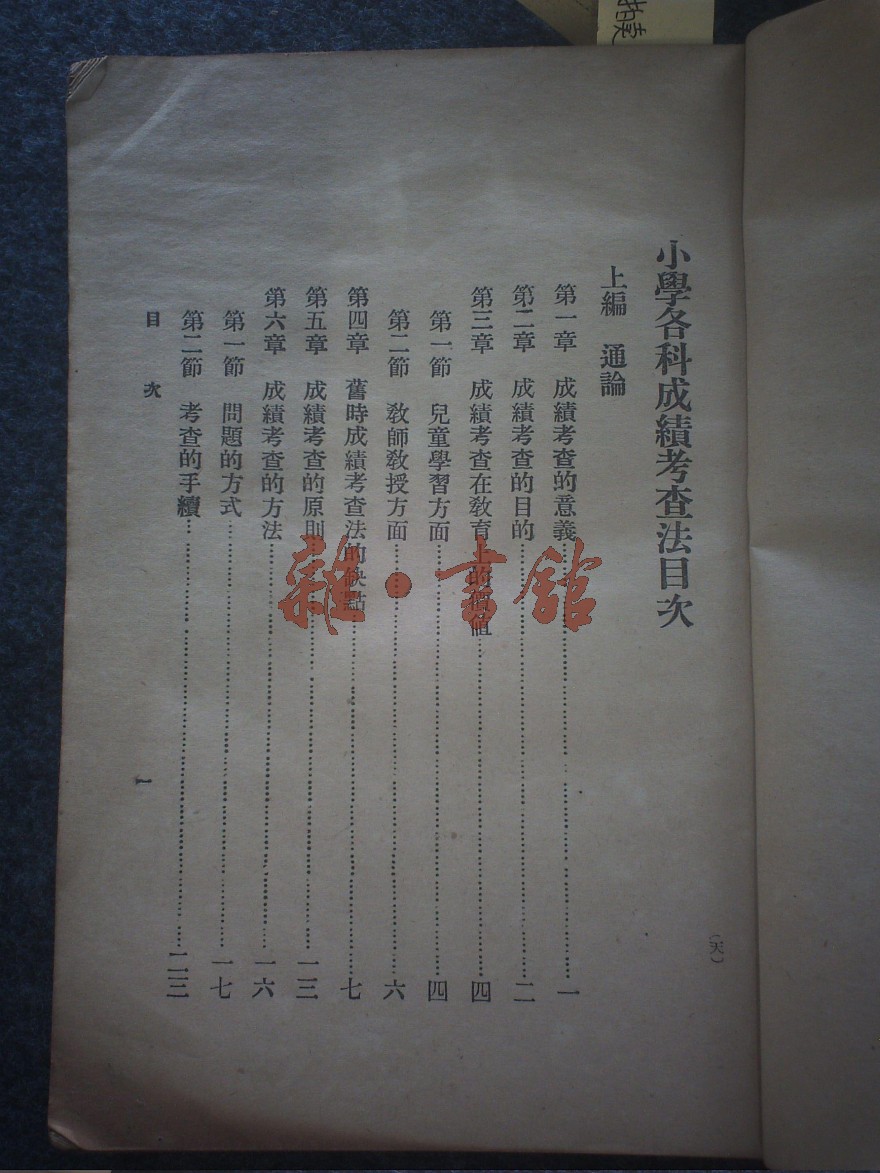 小學各科成績考查法目次
上編 通論
第一章 成績考查的意義……一
第二章 成績考查的目的……二
第三章 成績考查在敎育上的價値……四
第一節 兒童學習方面……四
第二節 敎師敎授方面……六
第四章 舊時成績考查法的缺點……七
第五章 成績考查的原則……一三
第六章 成績考查的方法……一六
第一節 問題的方式……一七
第二節 考查的手續……二三
目次
一
(天)
雜·書館